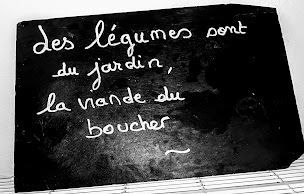 des légumes sont
du jardin,
la viande du
boucher
~